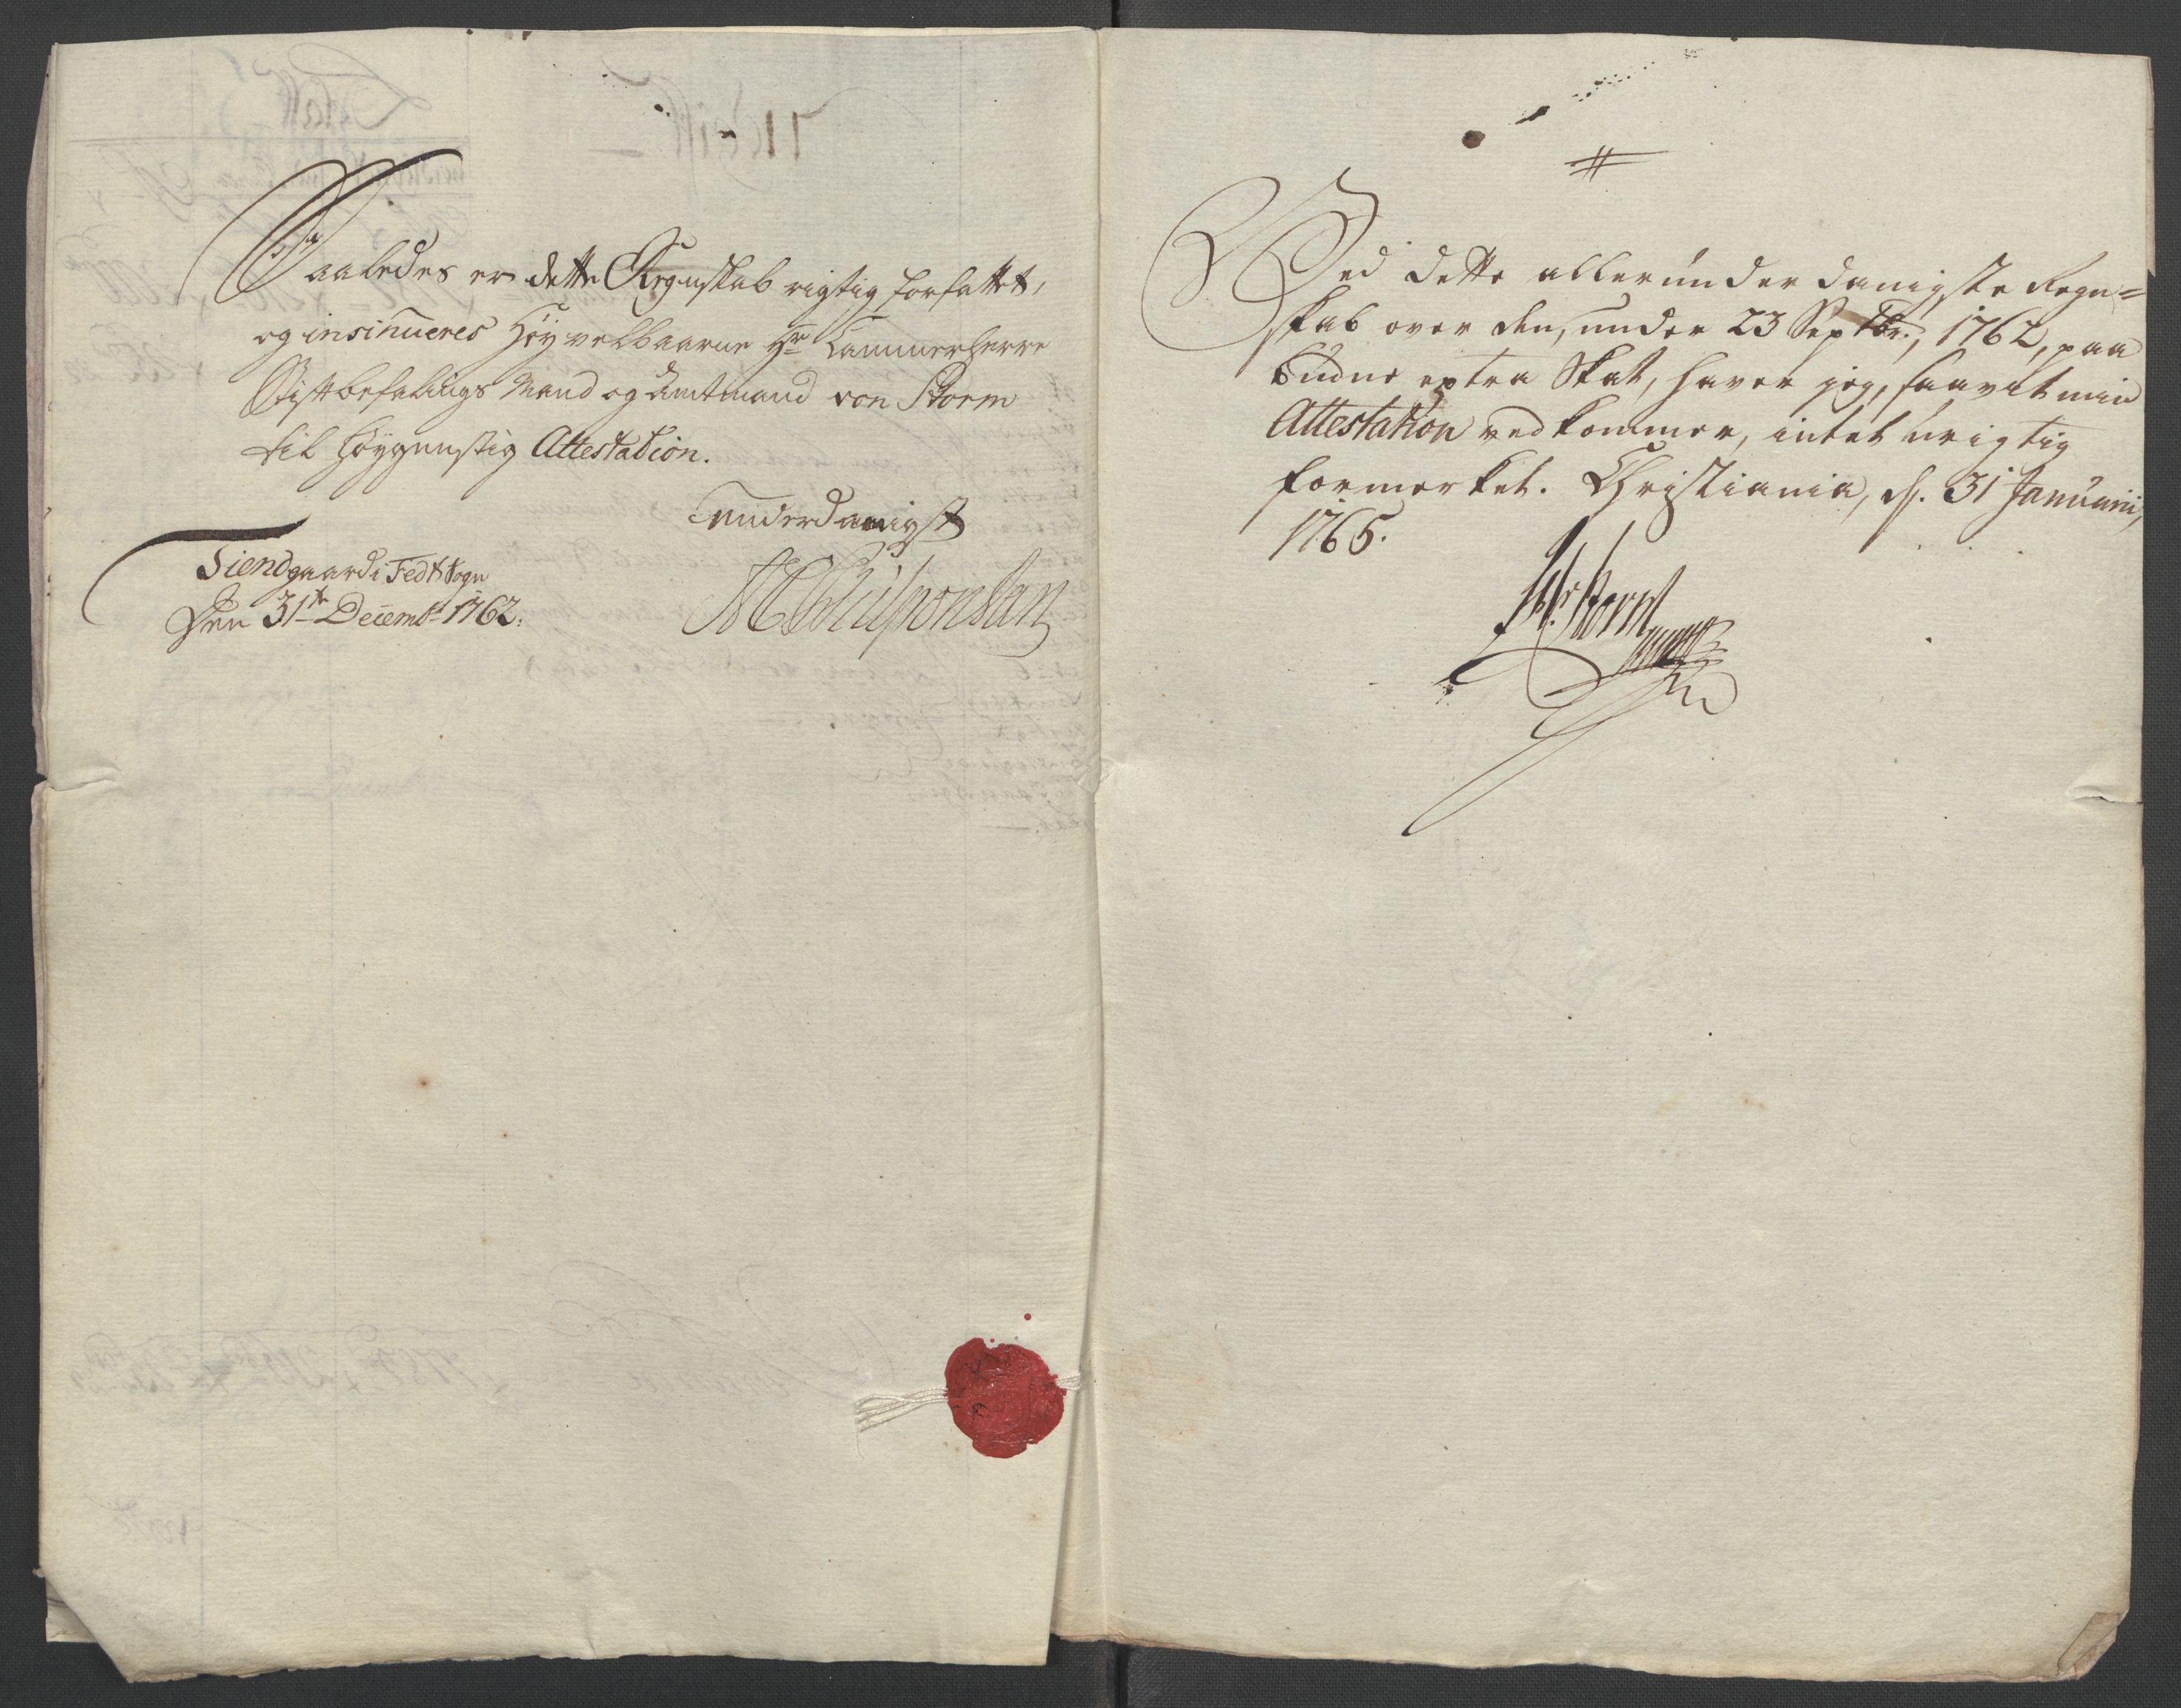 Saaledes er dette Regnskab rigtig forfattet,
og insinueres Høyvelbaarne Hr Cammerherre
Stiftbefalings Mand og Amtmand von Storm
til høygunstig Attestation.
underdanigst
Siendgaard i Fedt Sogn
Den 31te Decembr 1762.
Ved dette allerunderdanigste Regn=
skab over den, under 23 Septbr., 1762, paa
budne extra Skat, haver jeg, saavit min
Attestation vedkommer, intet urigtig
formerket. Christiania, d. 31 Januarii,
1765.
Storm